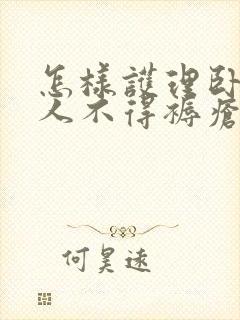 怎樣護理卧
人不得褥瘡
何昊遠